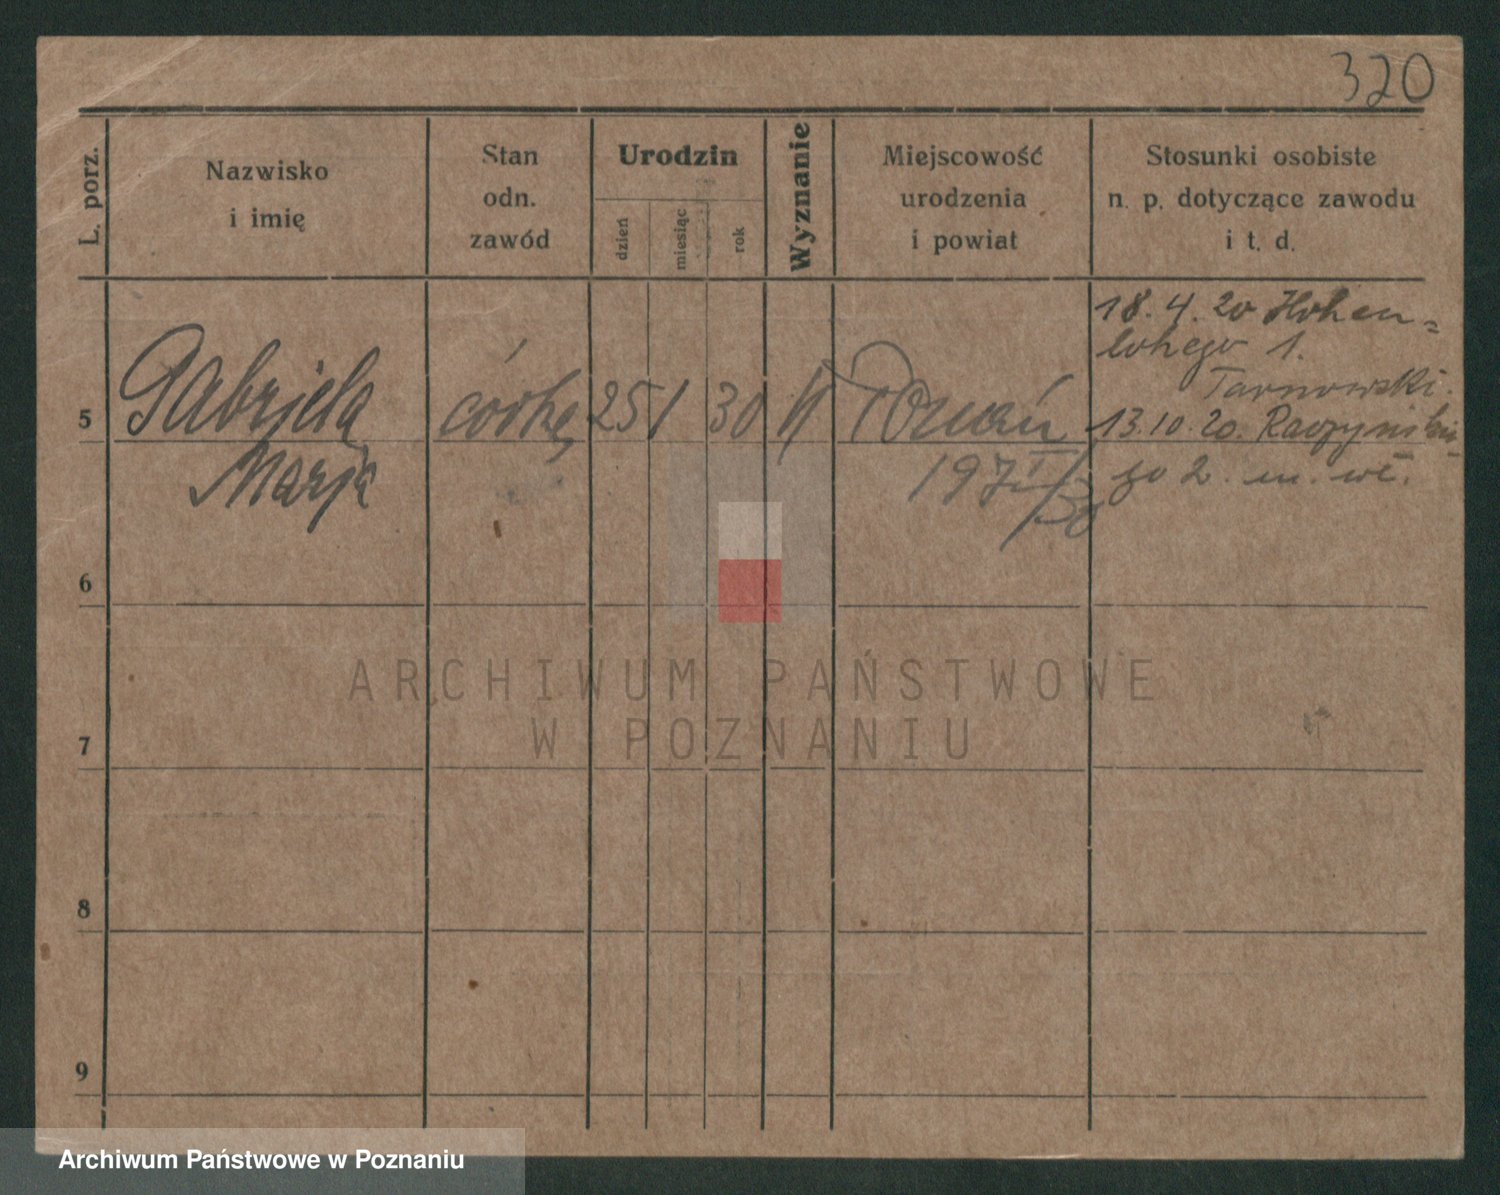 320
L. porz.
Nazwisko
i imię
Stan
odn.
zawód
Urodzin
dzień
miesiąc
rok
Wyznanie
Miejscowość
urodzenia
i powiat
Stosunki osobiste
n. p. dotyczące zawodu
i t. d.
5
Gabrjela
Marja
córka
25
1
30
K
Poznań
197 I/30
18.4.20 Hohen=
lohego 1.
Tarnowski.
13.10.20. Raczyńskie-
go 2. m. wł.
6
7
8
9
ARCHIWUM PAŃSTWOWE
W POZNANIU
Archiwum Państwowe w Poznaniu